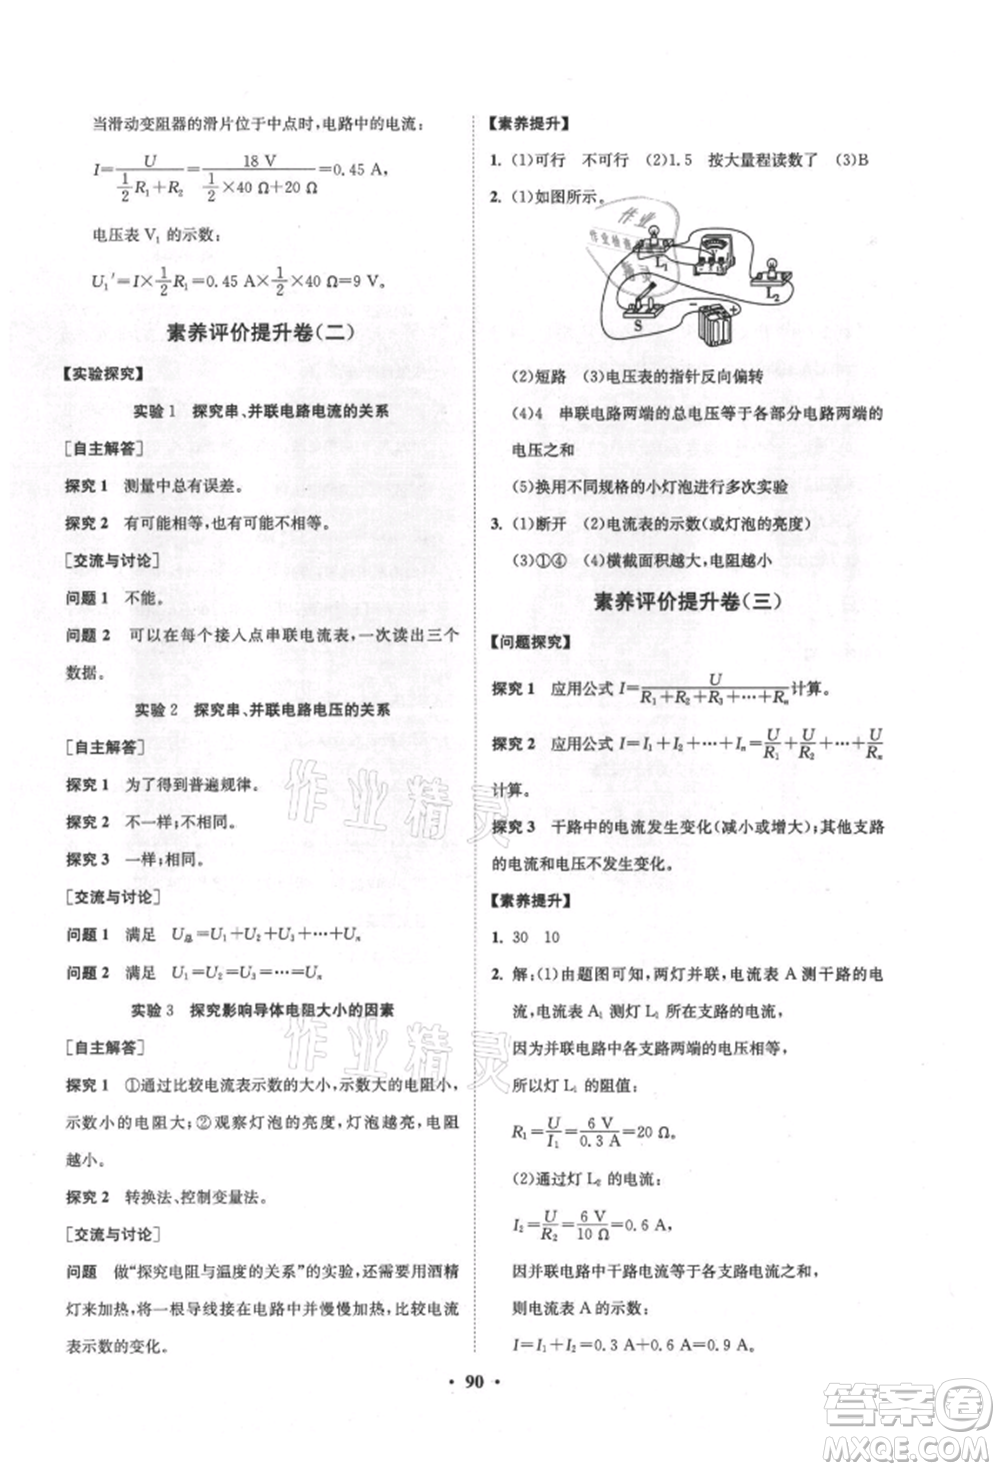 当滑动变阻器的滑片位于中点时,电路中的电流:
I=U/(1/2 R₁+R₂)=18 V/(1/2×40 Ω+20 Ω)=0.45 A,
电压表 V₁ 的示数:
U₁′=I×1/2 R₁=0.45 A×1/2×40 Ω=9 V。
素养评价提升卷(二)
【实验探究】
实验 1 探究串、并联电路电流的关系
[自主解答]
探究 1 测量中总有误差。
探究 2 有可能相等,也有可能不相等。
[交流与讨论]
问题 1 不能。
问题 2 可以在每个接入点串联电流表,一次读出三个
数据。
实验 2 探究串、并联电路电压的关系
[自主解答]
探究 1 为了得到普遍规律。
探究 2 不一样;不相同。
探究 3 一样;相同。
[交流与讨论]
问题 1 满足 U总=U₁+U₂+⋯+Uₙ
问题 2 满足 U₁=U₂=⋯=Uₙ
实验 3 探究影响导体电阻大小的因素
[自主解答]
探究 1 ①通过比较电流表示数的大小,示数大的电阻小,
示数小的电阻大;②观察灯泡的亮度,灯泡越亮,电阻
越小。
探究 2 转换法、控制变量法。
[交流与讨论]
问题 做“探究电阻与温度的关系”的实验,还需要用酒精
灯来加热,将一根导线接在电路中并慢慢加热,比较电流
表示数的变化。
【素养提升】
1. (1)可行 不可行 (2)1.5 按大量程读数了 (3)B
2. (1)如图所示。
L₁
V
L₂
S
− +
(2)短路 (3)电压表的指针反向偏转
(4)4 串联电路两端的总电压等于各部分电路两端的
电压之和
(5)换用不同规格的小灯泡进行多次实验
3. (1)断开 (2)电流表的示数(或灯泡的亮度)
(3)①④ (4)横截面积越大,电阻越小
素养评价提升卷(三)
【问题探究】
探究 1 应用公式 I=U/(R₁+R₂+R₃+⋯+Rₙ)计算。
探究 2 应用公式 I=I₁+I₂+⋯+Iₙ=U/R₁+U/R₂+⋯+U/Rₙ
计算。
探究 3 干路中的电流发生变化(减小或增大);其他支路
的电流和电压不发生变化。
【素养提升】
1. 30 10
2. 解:(1)由题图可知,两灯并联,电流表 A 测干路的电
流,电流表 A₁ 测灯 L₁ 的支路电流,
因为并联电路中各支路两端的电压相等,
所以灯 L₁ 的阻值:
R₁=U/I₁=6 V/0.3 A=20 Ω。
(2)通过灯 L₂ 的电流:
I₂=U/R₂=6 V/10 Ω=0.6 A,
因并联电路中干路电流等于各支路电流之和,
则电流表 A 的示数:
I=I₁+I₂=0.3 A+0.6 A=0.9 A。
• 90 •
作业精灵
作业精灵
作业
作业检查
精灵
答案圈
MXQE.COM